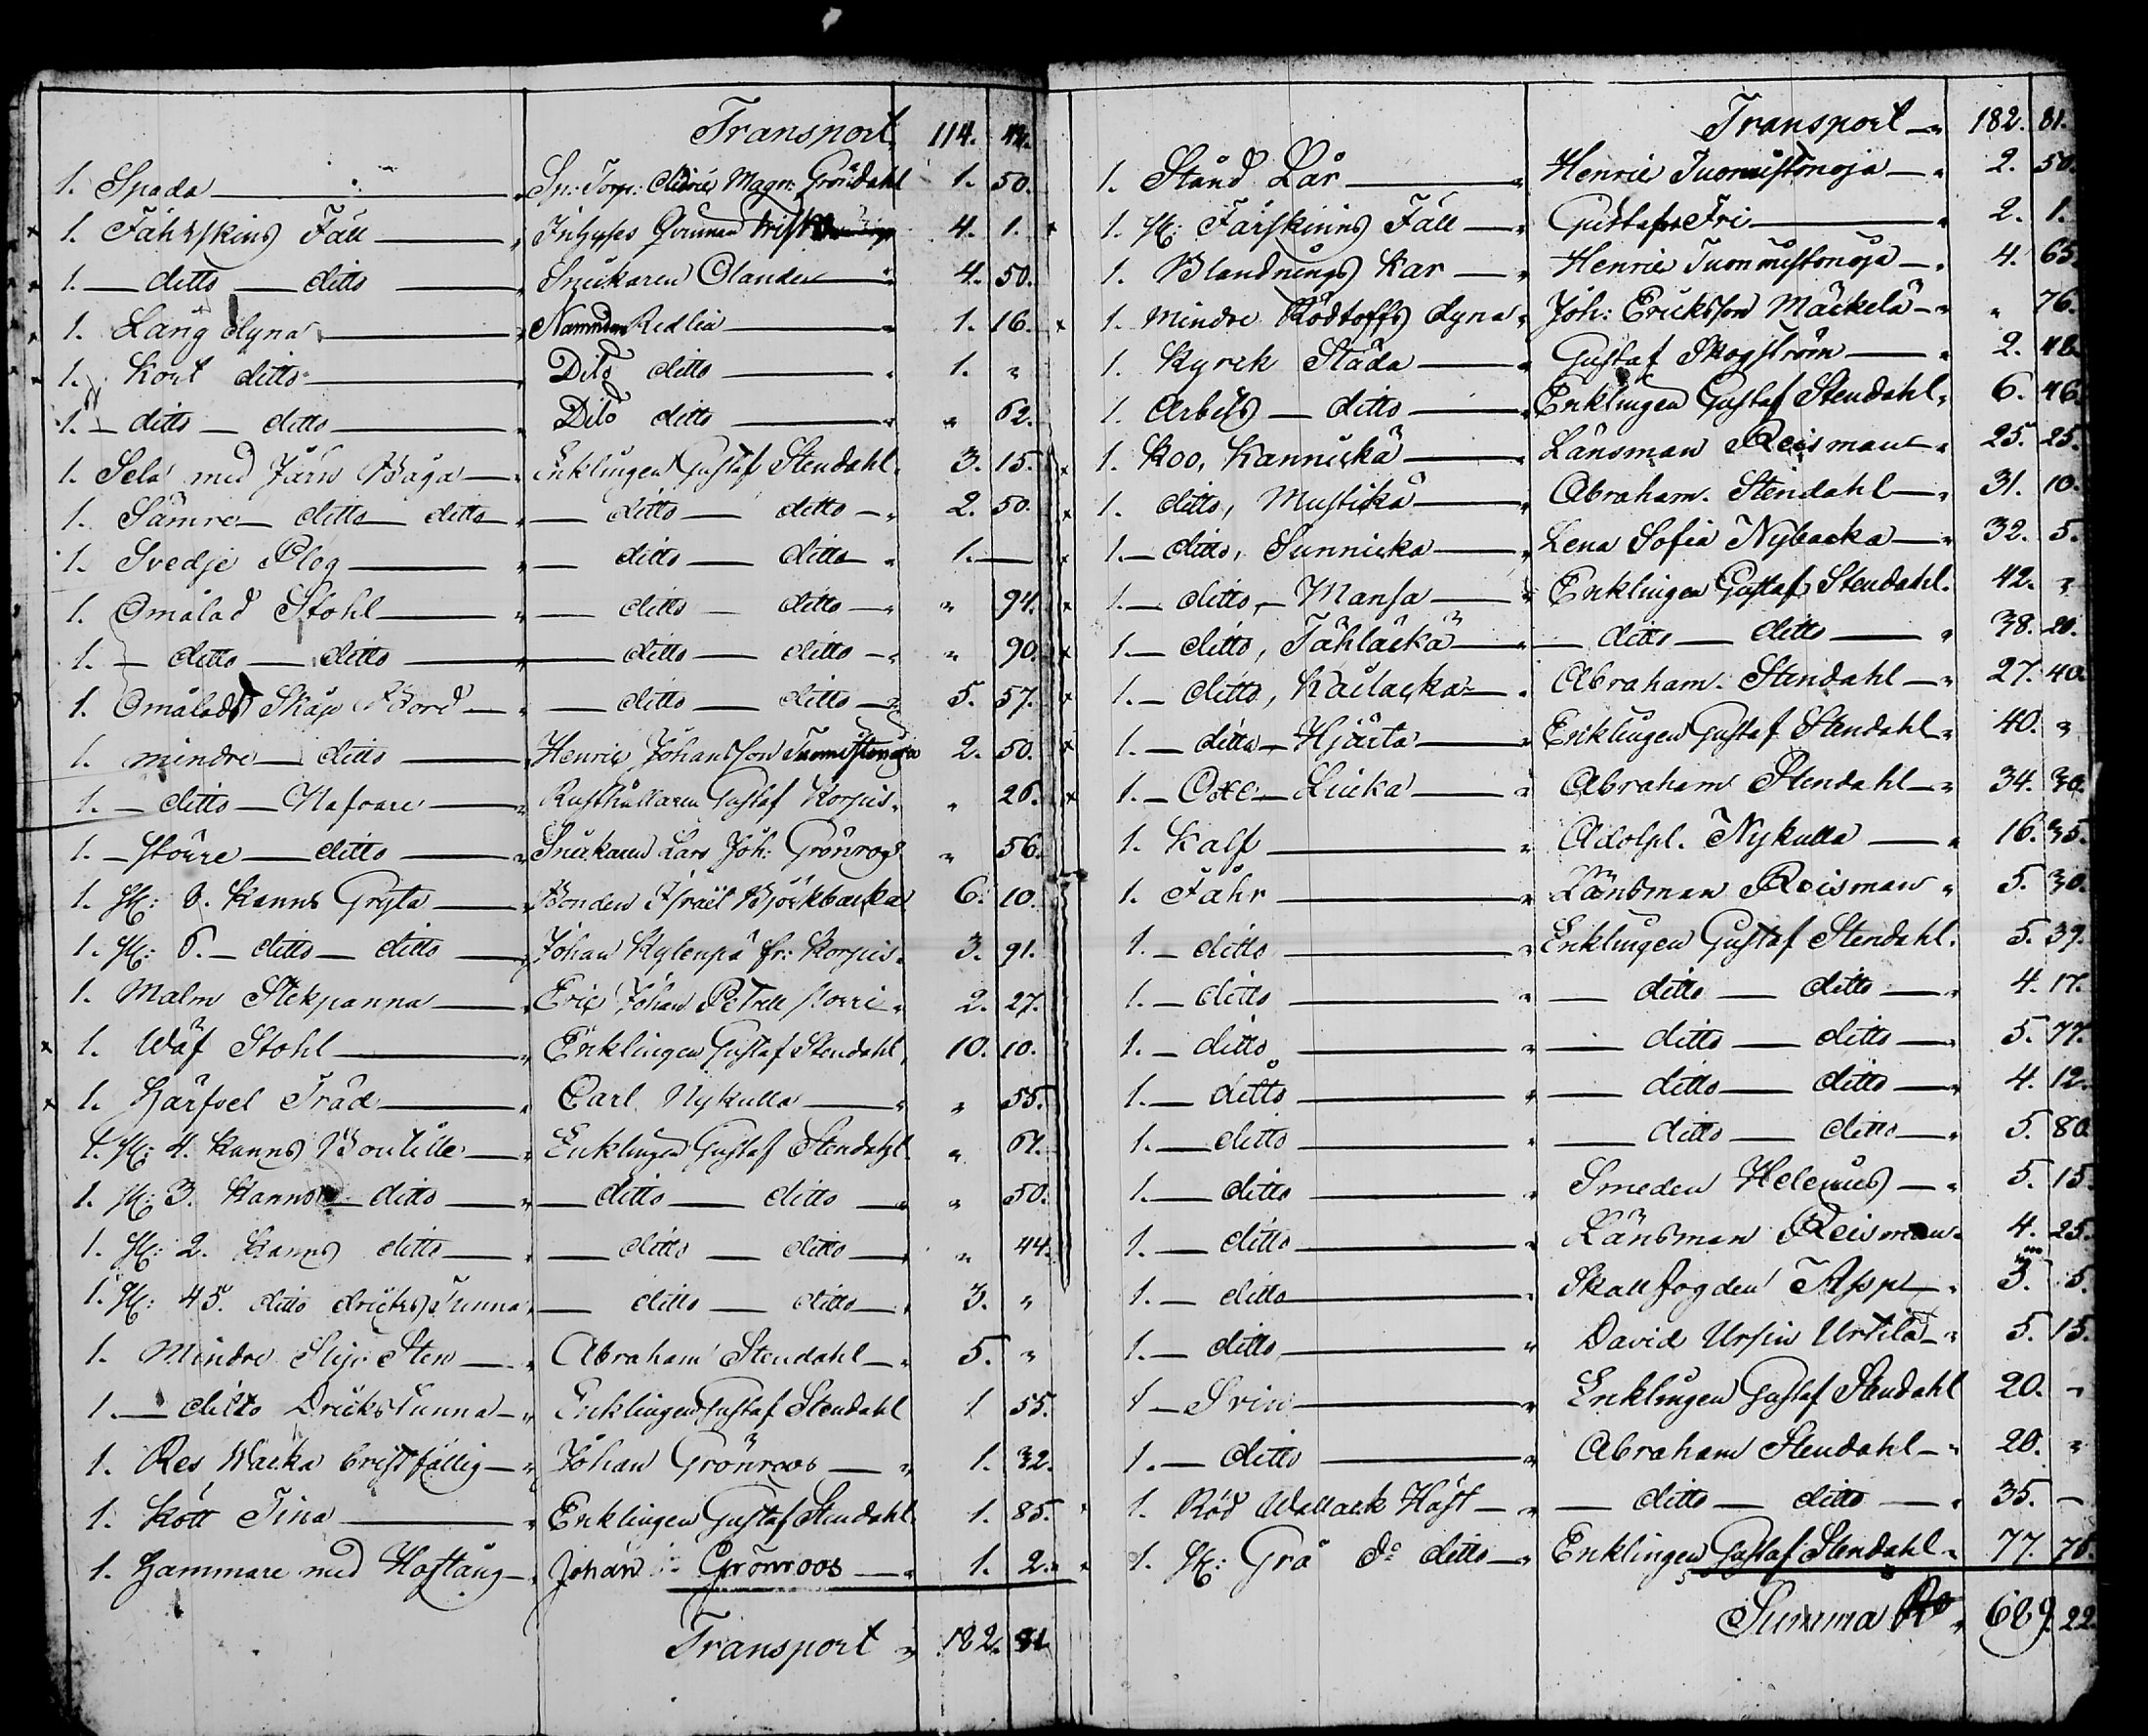 Transport 114. 42.
1. Spada Sn: Torp: Magn: Gröndahl 1. 50.
1. Fåhrskins Fäll Inhyses Qvinnan 4. 1.
1. ditto ditto Snickaren Olander 4. 50.
1. Lång dyna Nämndem Redlia 1. 16.
1. Kort ditto Dito ditto 1. "
1. ditto ditto Dito ditto " 62.
1. Sela med Järn Båga Enklingen Gustaf Stendahl 3. 15.
1. Sämre ditto ditto ditto ditto 2. 50.
1. Svedje Plog ditto ditto 1. —
1. Omålad Stohl ditto ditto " 94.
1. ditto ditto ditto ditto " 90.
1. Omåladt Skåp Bord ditto ditto 5. 57.
1. mindre ditto Henric Johansson Tuomistonoja 2. 50.
1. ditto Nafvare Rusthållaren Gustaf Korpis " 26.
1. större ditto Snickaren Lars Joh: Grönroos " 56.
1. st: 8. Kanns Gryta Bonden Israel Björkbacka 6. 10.
1. st: 6. ditto ditto Johan Kylenpä fr: Korpis 3. 91.
1. Malm Stekpanna Eric Johan Petrell 2. 27.
1. Wäf Stohl Enklingen Gustaf Stendahl 10. 10.
1. Härfvel Träd Carl Nykulla " 55.
1. st: 4. Kanns Boutille Enklingen Gustaf Stendahl " 61.
1. st: 3. Kanns ditto ditto ditto " 50.
1. st: 2. Kanns ditto ditto ditto " 44.
1. st: 45. ditto dricks Tunna ditto ditto 3. "
1. Mindre Slip Sten Abraham Stendahl 5. "
1. ditto Dricks Tunna Enklingen Gustaf Stendahl 1 55.
1. Res Wacka bristfällig Johan Grönroos 1. 32.
1. Kött Tina Enklingen Gustaf Stendahl 1. 85.
1. Hammare med Hoftång Johan Grönroos 1. 2.
Transport 182. 81.
Transport 182. 81.
1. Stånd Lår Henric Tuomistonoja 2. 50.
1. st: Fårskinns Fäll Gustaf Fri 2. 1.
1. Blandnings Kar Henric Tuomistonoja 4. 65.
1. Mindre Ködtoffs dyna Joh: Ericksson Mäckelä " 76.
1. Kyrck Släda Gustaf Skogström 2. 48.
1. Arbets ditto Enklingen Gustaf Stendahl 6. 46.
1. Koo, Kannicka Länsman Reisman 25. 25.
1. ditto, Musticka Abraham Stendahl 31. 10.
1. ditto, Sunnicka Lena Sofia Nybacka 32. 5.
1. ditto, Mansa Enklingen Gustaf Stendahl 42. "
1. ditto, Tähläckä ditto ditto 38. 20.
1. ditto, Kailacka Abraham Stendahl 27. 40.
1. ditto Hjärta Enklingen Gustaf Stendahl 40. "
1. Oxe Licka Abraham Stendahl 34. 30.
1. Kalf Adolph. Nykulla 16. 35.
1. Fåhr Länsman Reisman 5. 30.
1. ditto Enklingen Gustaf Stendahl 5. 39.
1. ditto ditto ditto 4. 17.
1. ditto ditto ditto 5. 77.
1. ditto ditto ditto 4. 12.
1. ditto ditto ditto 5. 80.
1. ditto Smeden Helenius 5. 15.
1. ditto Länsman Reisman 4. 25.
1. ditto Skallfogden Aspe 3. 5.
1. ditto David Ursin Urtila 5. 15.
1 Svin Enklingen Gustaf Stendahl 20. "
1. ditto Abraham Stendahl 20. "
1. Röd Wallack Häst ditto ditto 35. —
1. st: Grå do ditto Enklingen Gustaf Stendahl 77. 75.
Summa Ro 689. 22.